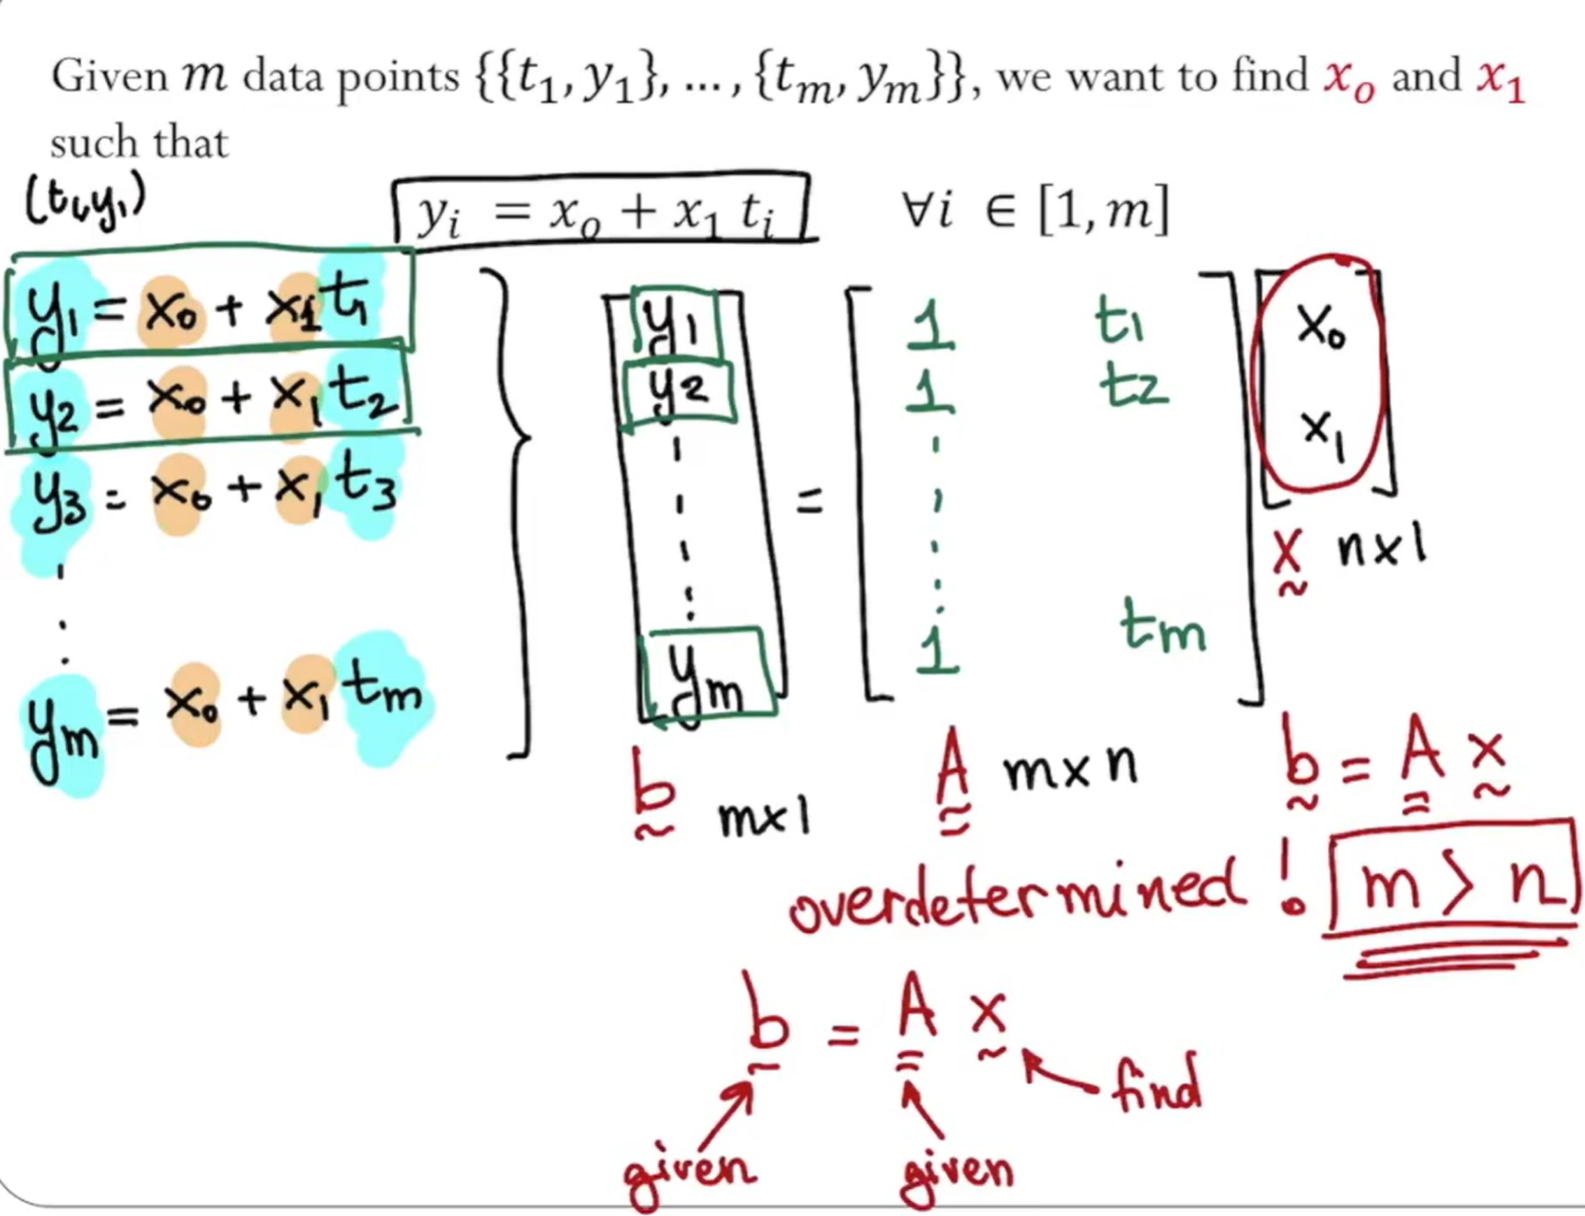 Given m data points {{t₁, y₁}, ... , {tₘ, yₘ}}, we want to find xₒ and x₁
such that
(t₁,y₁)
yᵢ = xₒ + x₁ tᵢ ∀i ∈ [1, m]
y₁ = x₀ + x₁t₁
y₂ = x₀ + x₁t₂
y₃ = x₀ + x₁t₃
yₘ = x₀ + x₁tₘ
y₁
y₂
yₘ
=
1 t₁
1 t₂
1 tₘ
x₀
x₁
x n×1
b m×1
A m×n
b = A x
overdetermined ! m > n
b = A x
find
given given